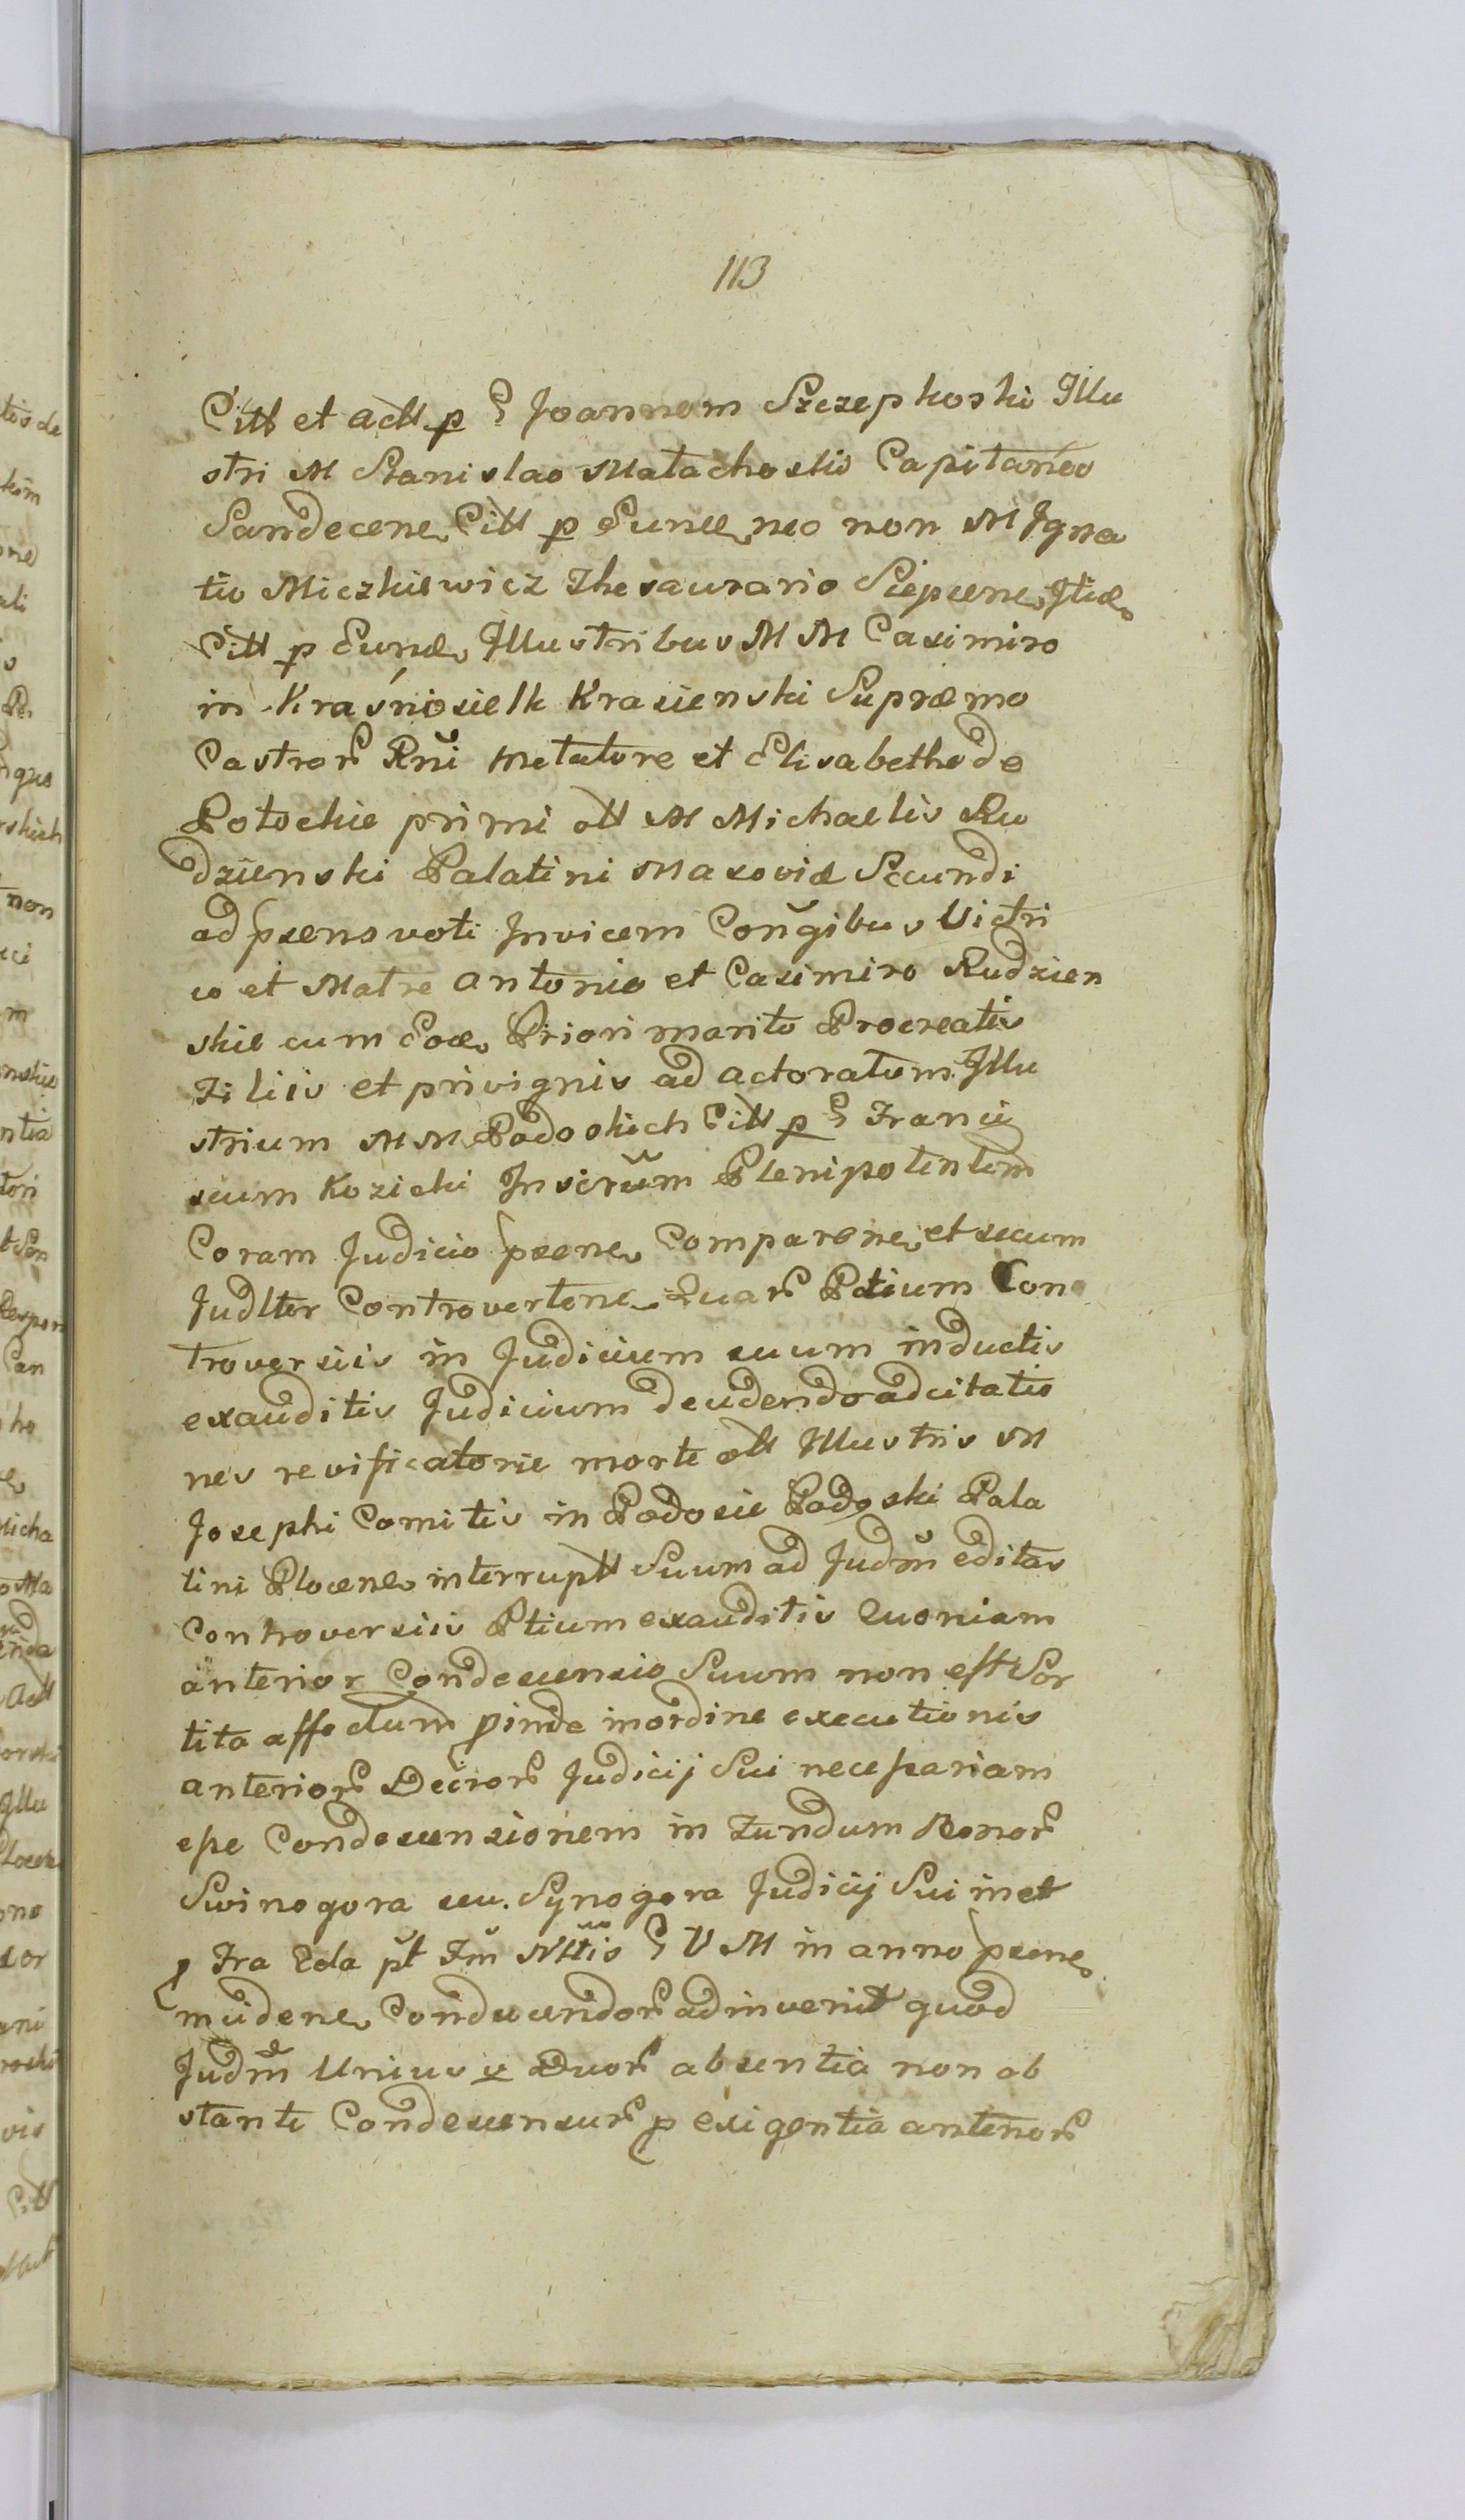 113
Citt et actt p G Joannem Szczepkoski Illu
stri M Stanislao Małachoskio Capitaneo
Sandecene Citt p Eunde nec non M Igna
tio Miczkiewicz Thesaurario Siepcene Itide
Citt p Eunde Illustribus M M Casimiro
in Kraśnosielk Krasienski Supræmo
Castror Rni Metatore et Elisabetha de
Potockie primi ott M Michaelis Ru
dzienski Palatini Masoviæ Secundi
ad psens voti Invicem Conigibus Victri
co et Matre Antonio et Casimiro Rudzien
skie cum Eode Priori marito Procreatis
Filiis et privignis ad actoratum Illu
strium M M Podoskich Citt p G Francis
cum Kozicki Inscrum Plenipotentem
Coram Judicio psene Comparene et secum
Judlter Controvertene Quar Ptium Con
troversiis in Judicium suum inductis
exauditis Judicium decidendo ad citatio
nes revificatorie morte ott Illustris M
Josephi Comitis in Podosie Podoski Pala
tini Plocene interruptt Suum ad Judm editas
Controversiis Ptium exauditis Quoniam
anterior Condescensio Suum non est Sor
tita affectum pinde in ordine executionis
anterior Decror Judicij Sui necessariam
esse Condescensionem in Fundum Bonor
Swinogora seu Synogora Judicij Sui inet
Fra 2da pt Fm Nttis G V M in anno psene
midene Conducendor adinvenit quod
Judm Unius v Duor absentia non ob
stante Condescensur p exigentia anterior